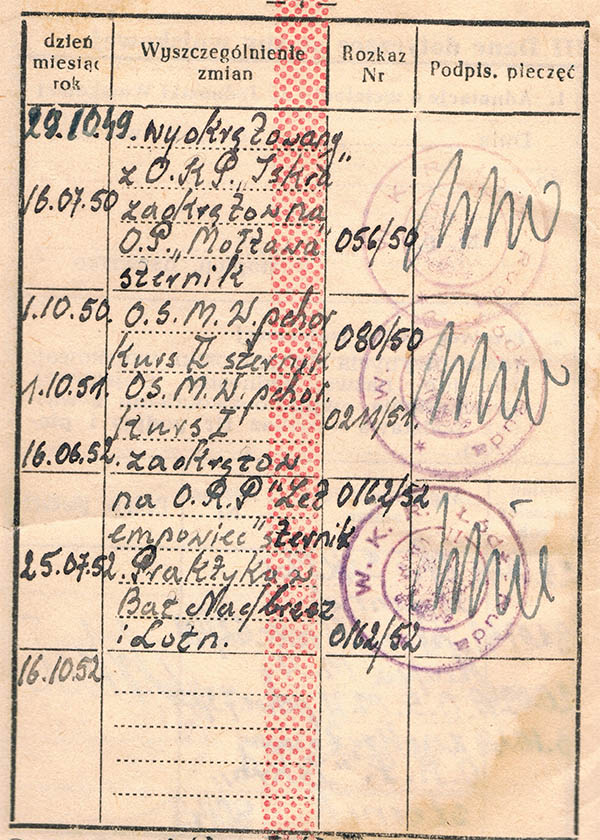 dzień miesiąc rok
Wyszczególnienie zmian
Rozkaz Nr
Podpis. pieczęć
29.10.49. wyokrętowany
z O.R.P. „Iskra"
16.07.50 zaokrętow na
O.P. „Mołtawa" 056/50
sternik
1.10.50. O.S.M.W. pchor 080/50
Kurs II sternik
1.10.51. O.S.M.W. pchor.
Kurs I 0211/51.
16.06.52. zaokrętow
na O.R.P "Żeg 0162/52
sternik
25.07.52. Praktyka w
Bat Nadbrzeż
i Lotn. 0162/52
16.10.52
W. K. R. Łódź Ruda